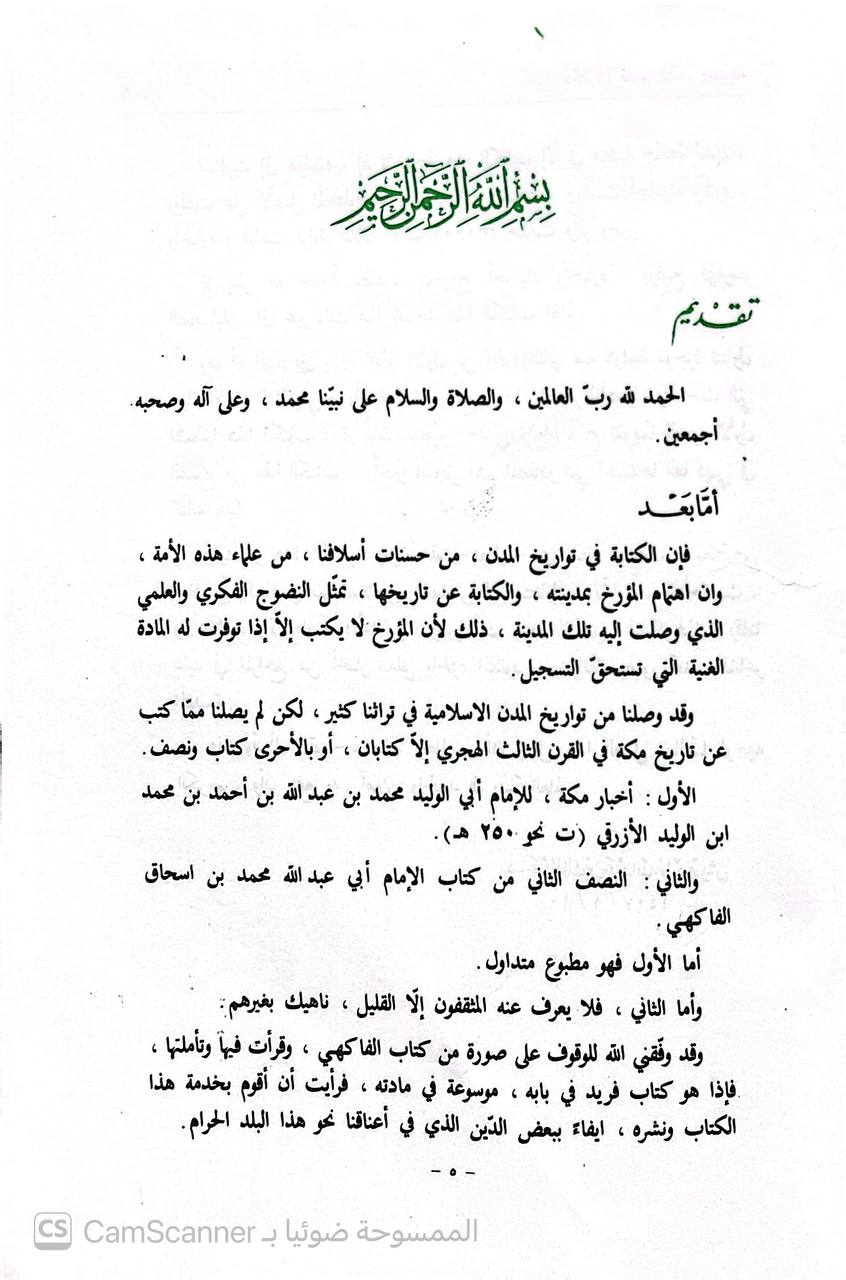 ١
بسم الله الرحمن الرحيم
تقديم
الحمد لله ربّ العالمين ، والصلاة والسلام على نبيّنا محمد ، وعلى آله وصحبه
أجمعين .
أمّا بَعَد
فإن الكتابة في تواريخ المدن ، من حسنات أسلافنا ، من علماء هذه الأمة ،
وان اهتمام المؤرخ بمدينته ، والكتابة عن تاريخها ، تمثّل النضوج الفكري والعلمي
الذي وصلت إليه تلك المدينة ، ذلك لأن المؤرخ لا يكتب إلاّ إذا توفرت له المادة
الغنية التي تستحقّ التسجيل .
وقد وصلنا من تواريخ المدن الاسلامية في تراثنا كثير ، لكن لم يصلنا ممّا كتب
عن تاريخ مكة في القرن الثالث الهجري إلاّ كتابان ، أو بالأحرى كتاب ونصف .
الأول : أخبار مكة ، للإمام أبي الوليد محمد بن عبد الله بن أحمد بن محمد
ابن الوليد الأزرقي (ت نحو ٢٥٠ هـ) .
والثاني : النصف الثاني من كتاب الإمام أبي عبد الله محمد بن اسحاق
الفاكهي .
أما الأول فهو مطبوع متداول .
وأما الثاني ، فلا يعرف عنه المثقفون إلّا القليل ، ناهيك بغيرهم .
وقد وفّقني الله للوقوف على صورة من كتاب الفاكهي ، وقرأت فيها وتأملتها ،
فإذا هو كتاب فريد في بابه ، موسوعة في مادته ، فرأيت أن أقوم بخدمة هذا
الكتاب ونشره ، ايفاءً ببعض الدّين الذي في أعناقنا نحو هذا البلد الحرام .
- ٥ -
CS CamScanner الممسوحة ضوئيا بـ